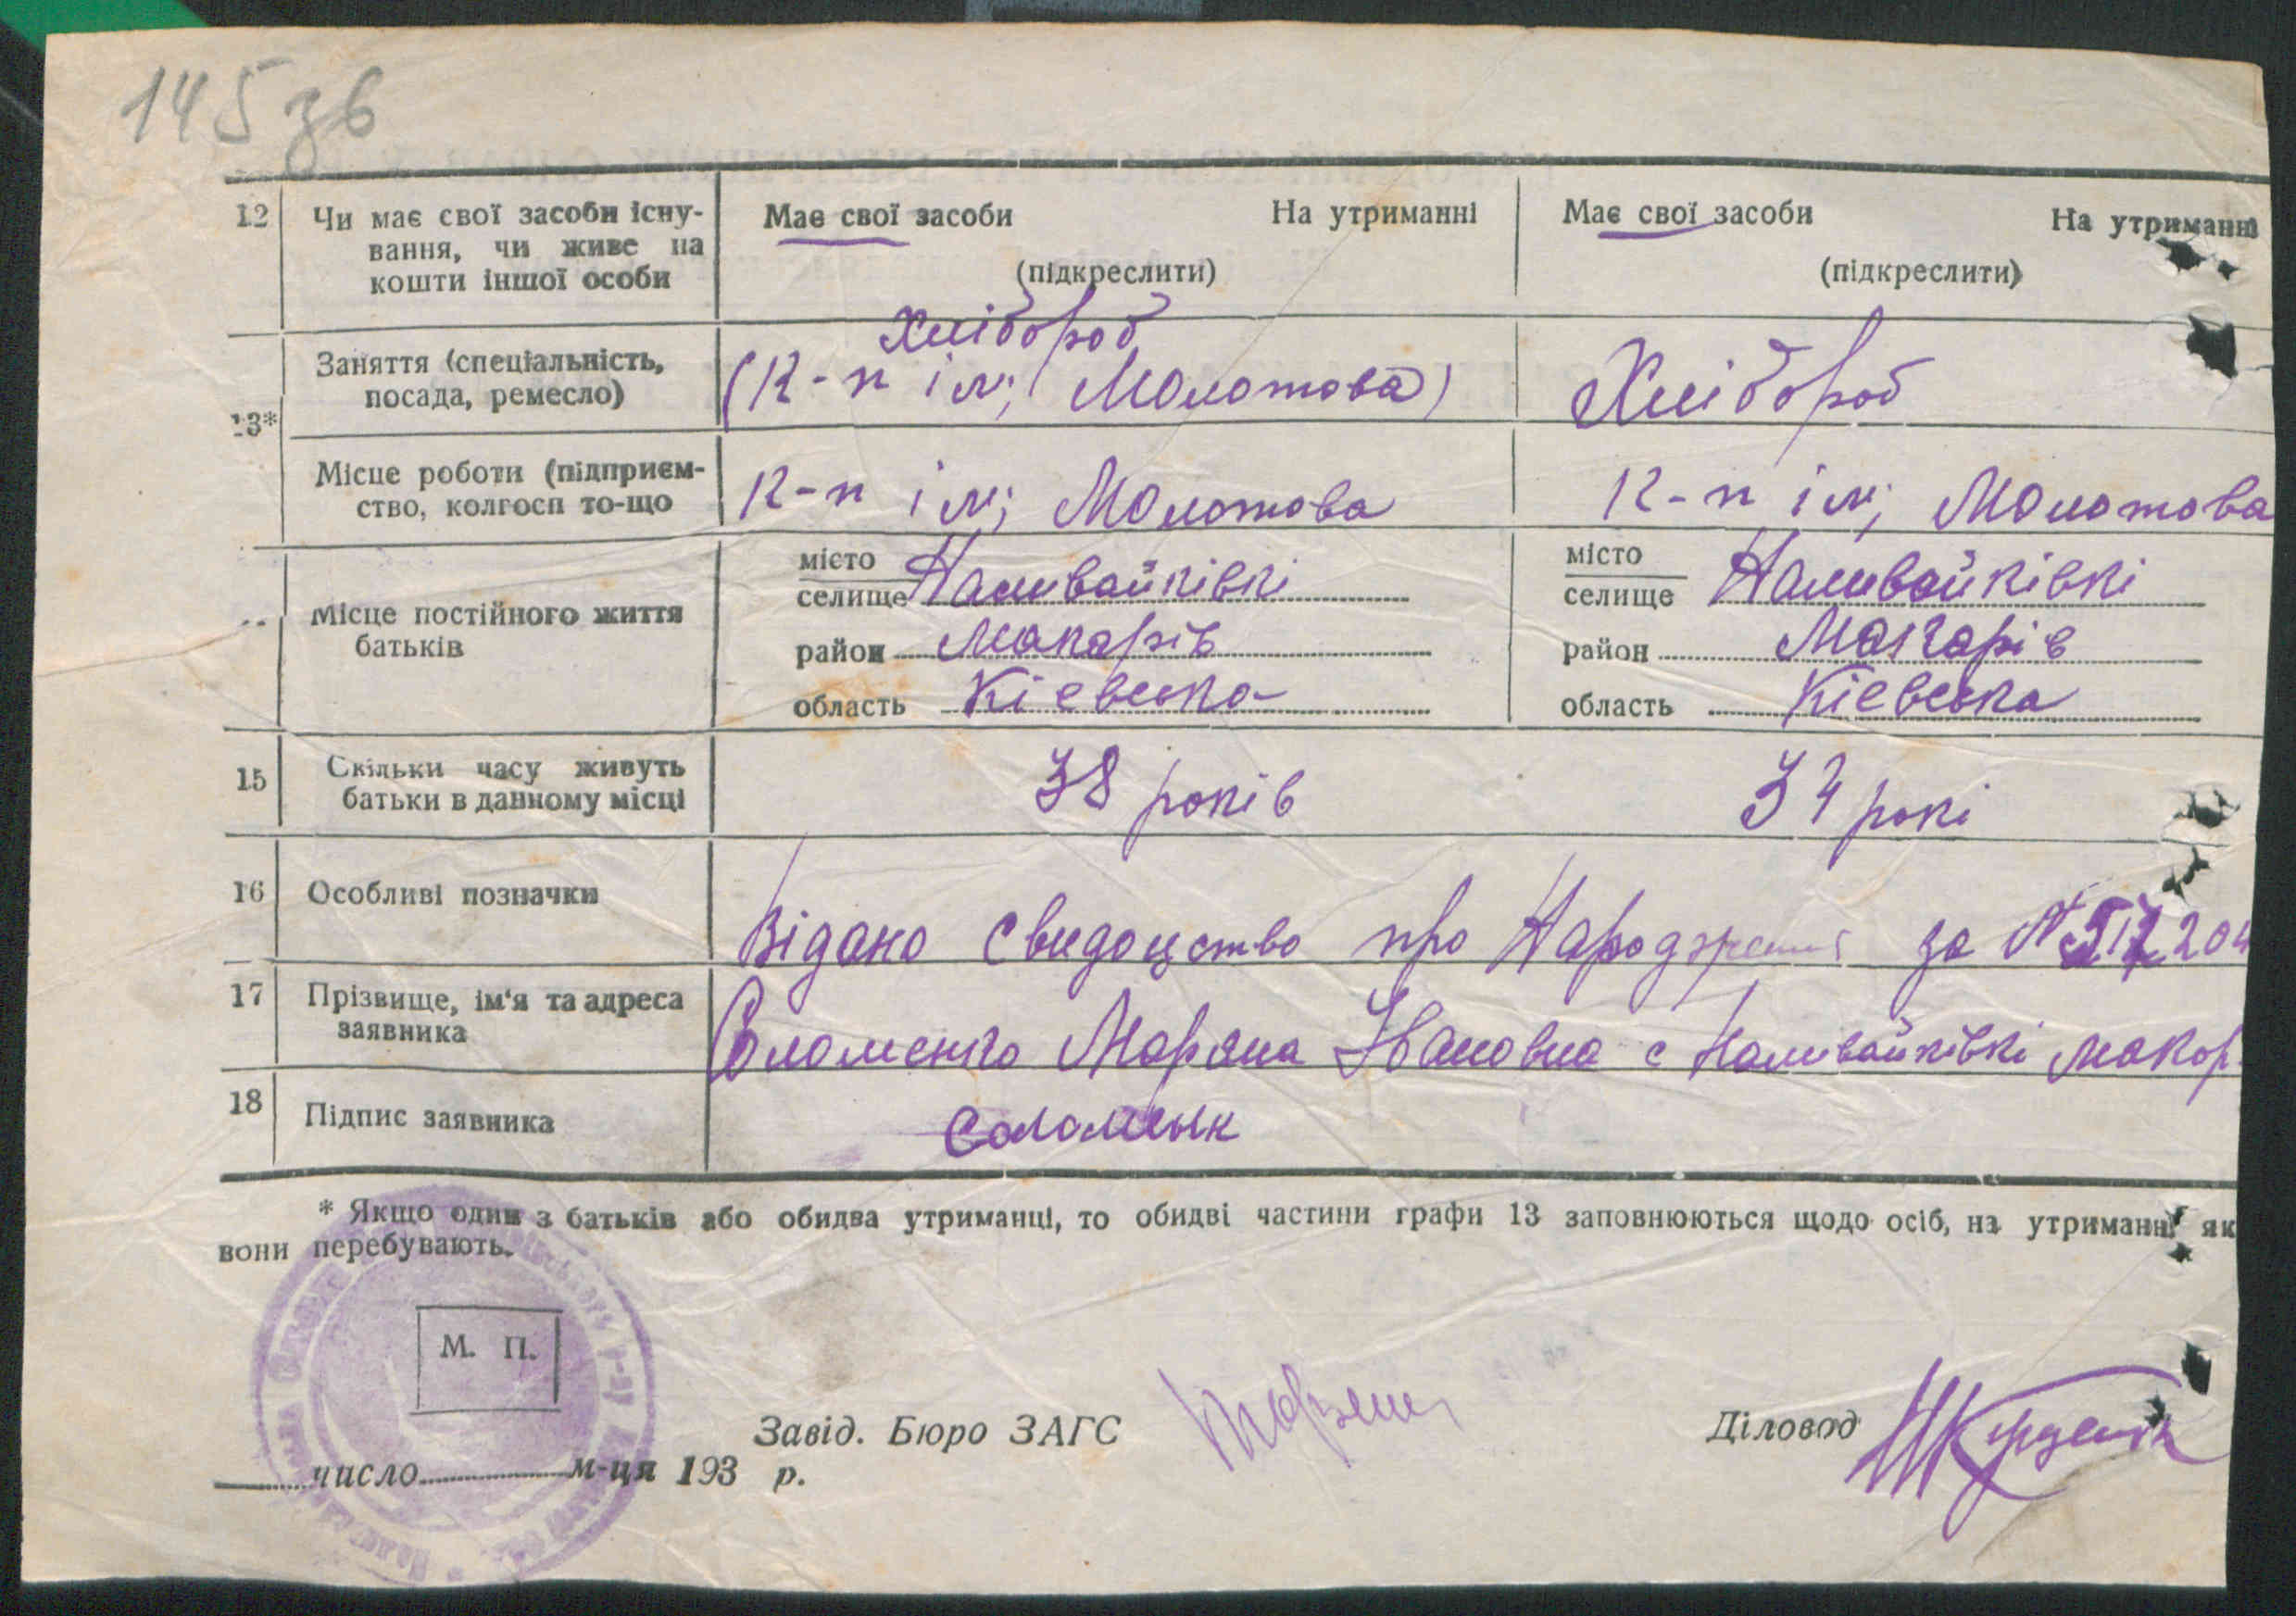 145 зв
12 Чи має свої засоби існу- Має свої засоби На утриманні Має свої засоби На утриманні
вання, чи живе на
кошти іншої особи (підкреслити) (підкреслити)
Хлібороб
Заняття (спеціальність, (К-п ім; Молотова) Хлібороб
посада, ремесло)
13*
Місце роботи (підприєм- К-п ім; Молотова К-п ім; Молотова
ство, колгосп то-що
місто місто
селище Наливайківкі селище Наливайківкі
Місце постійного життя
батьків район Макарів район Макарів
область Кіевська область Кіевська
15 Скільки часу живуть 38 років 34 рокі
батьки в данному місці
16 Особливі позначки
Відано свидоцство про Народження за №
17 Прізвище, ім'я та адреса
заявника Соломенко Моряна Івановна с Наливайківкі макар
18 Підпис заявника Соломеык
* Якщо один з батьків або обидва утриманці, то обидві частини графи 13 заповнюються щодо осіб, на утриманні як
вони перебувають.
М. П.
Завід. Бюро ЗАГС Діловод
число м-ця 193 р.